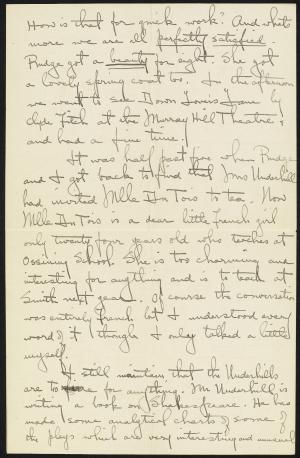 How is that for quick work? And whats
more we are all perfectly satisfied.
Pudge got a beauty for eight. She got
a lovely spring coat too. In the afternoon
we went to see Down Lovers' Lane by
Clyde Fitch at the Murray Hill Theatre,
and had a fine time!
It was half past five when Pudge
and I got back to find that Mrs Underhill
had invited Mlle Du Tois to tea. Now
Mlle Du Tois is a dear little French girl
only twenty four years old who teaches at
Ossining School. She is too charming and
interesting for anything and is to teach at
Smith next year. Of course the conversation
was entirely French but I understood every
word of it though I only talked a little
myself.
I still maintain that the Underhills
are to for anything. Mr Underhill is
writing a book on Shakespeare. He has
made some analytical charts of some of
the plays which are very interesting and unusual